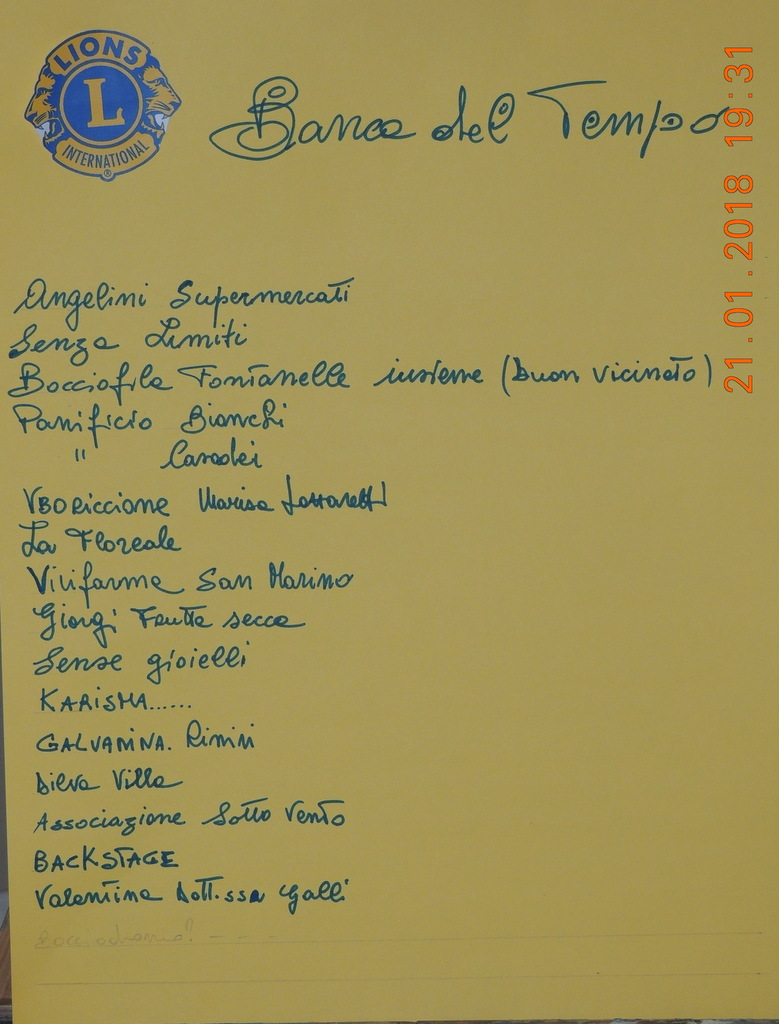 LIONS
L
INTERNATIONAL
®
Banca del Tempo
21.01.2018 19:31
Angelini Supermercati
Senza Limiti
Bocciofila Fontanelle insieme (buon vicinato)
Panificio Bianchi
" Casadei
VBO Riccione Marisa
La Floreale
Vitifarma San Marino
Giorgi Frutta secca
Sense gioielli
KARISMA......
GALVANINA. Rimini
Dilva Villa
Associazione Sotto Vento
BACKSTAGE
Valentina Dott.ssa Galli